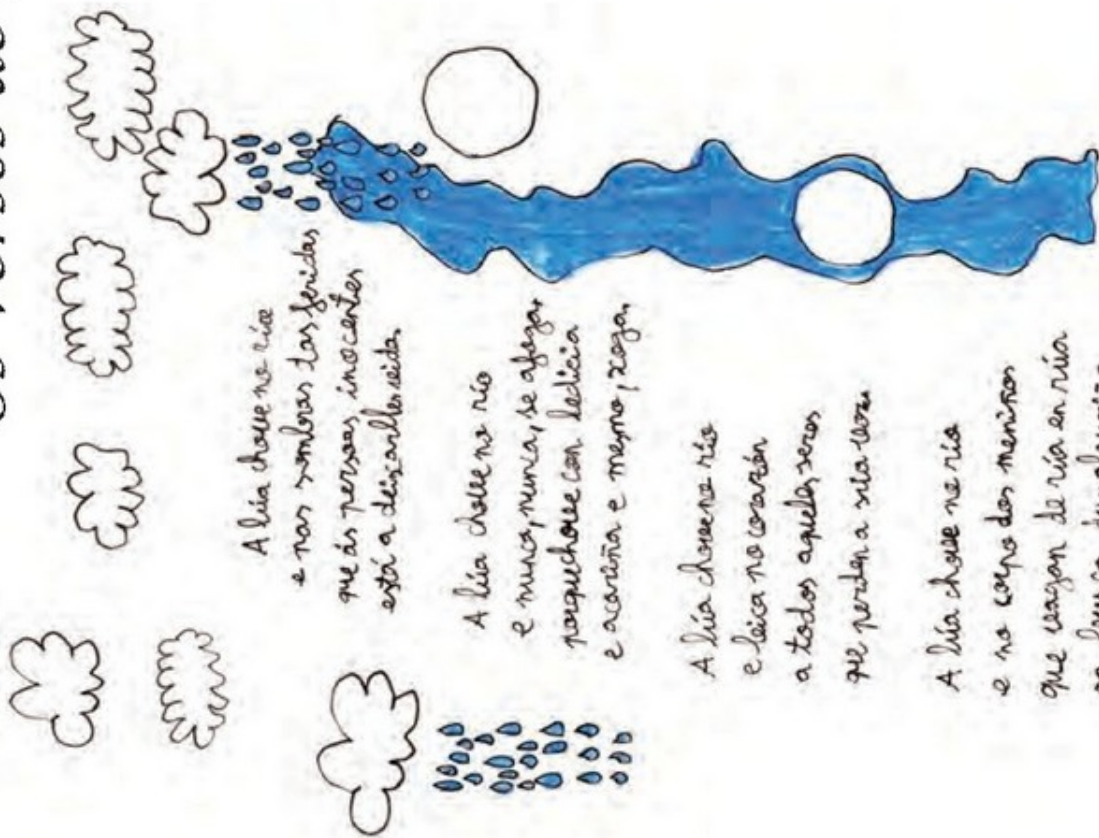 Os versos
A lúa chove no río
e nas sombras tas feridas
que ás persoas inocentes
está a
A lúa chove no río
e nunca, nunca, se afoga,
porque chove con ledicia
e acariña e mesmo, xoga,
A lúa chove no río
e bica no corazón
a todos aqueles seres
que perden a súa voz
A lúa chove no río
e no corpo dos meniños
que vagan de rúa en rúa